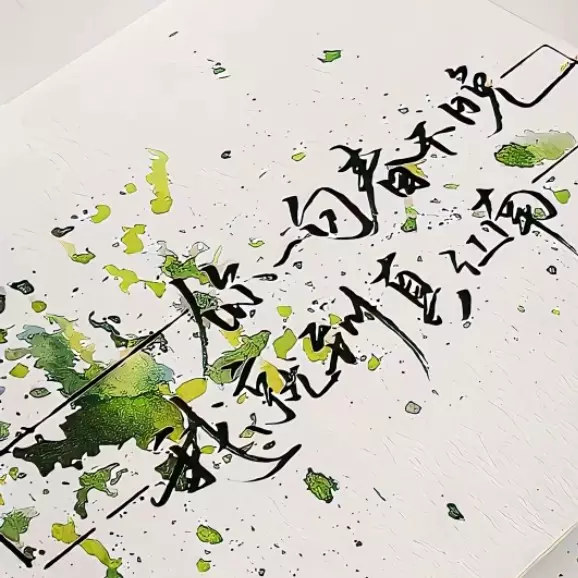 你一句春不晚
我就到真江南